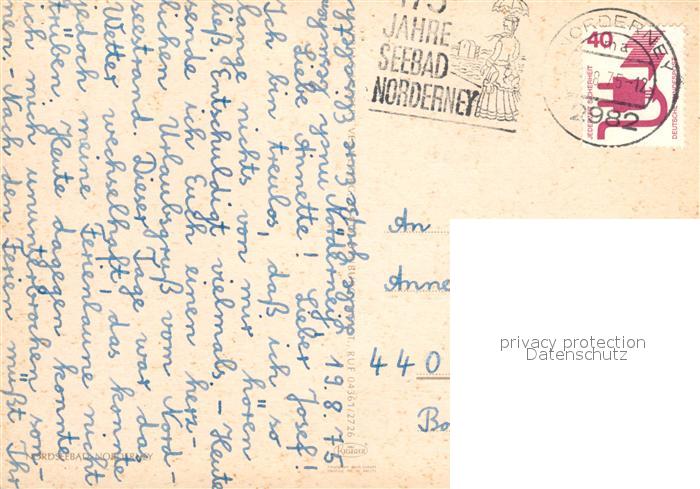 175
JAHRE
SEEBAD
NORDERNEY
NORDERNEY
75-12
2982
40
JEDERZEIT SICHERHEIT
DEUTSCHE BUNDESPOST
Norderney 19.8.75
Liebe Annette! Lieber Josef!
Ich bin treulos, daß ich so
lange nichts von mir hören
ließ. Entschuldigt vielmals. – Heute
sende ich Euch einen herz-
lichen Urlaubsgruß vom Nord-
seestrand. Dieser Tage war das
Wetter wechselhaft, das konnte
jedoch meine Ferienlaune nicht
trüben. Heute dagegen konnte
ich mich ununterbrochen son-
nen. – Nach den Ferien müßt Ihr
An
Anne
440
NORDSEEBAD NORDERNEY
RUF 04361/2726
privacy protection
Datenschutz